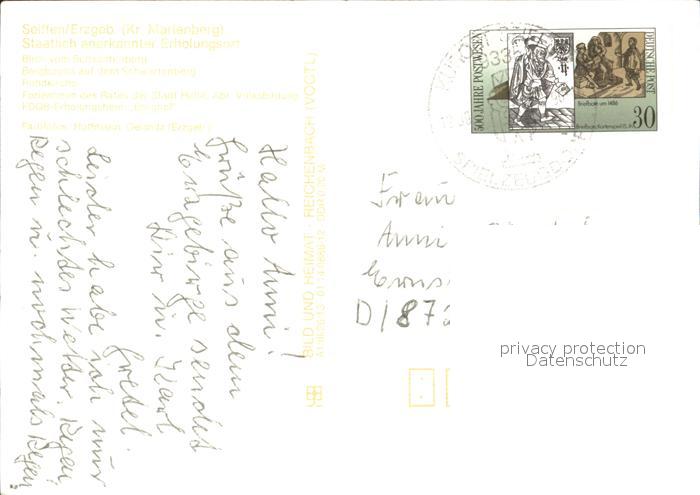 Seiffen/Erzgeb. (Kr. Marienberg)
Staatlich anerkannter Erholungsort
Blick vom Schwartenberg
Bergbaude auf dem Schwartenberg
Rundkirche
Ferienheim des Rates der Stadt Halle, Abt. Volksbildung
FDGB-Erholungsheim
Farbfotos: Hoffmann, Oelsnitz (Erzgeb.)
Hallo Anni!
Grüße aus dem
Erzgebirge sendet
Dir
Gretel.
Leider habe ich nur
schlechtes Wetter. Regen
Regen u. nochmals Regen
BILD UND HEIMAT · REICHENBACH (VOGTL)
500 JAHRE POSTWESEN
DEUTSCHE POST
Briefbote um 1486
30
Frau
Anni
D/872
privacy protection
Datenschutz